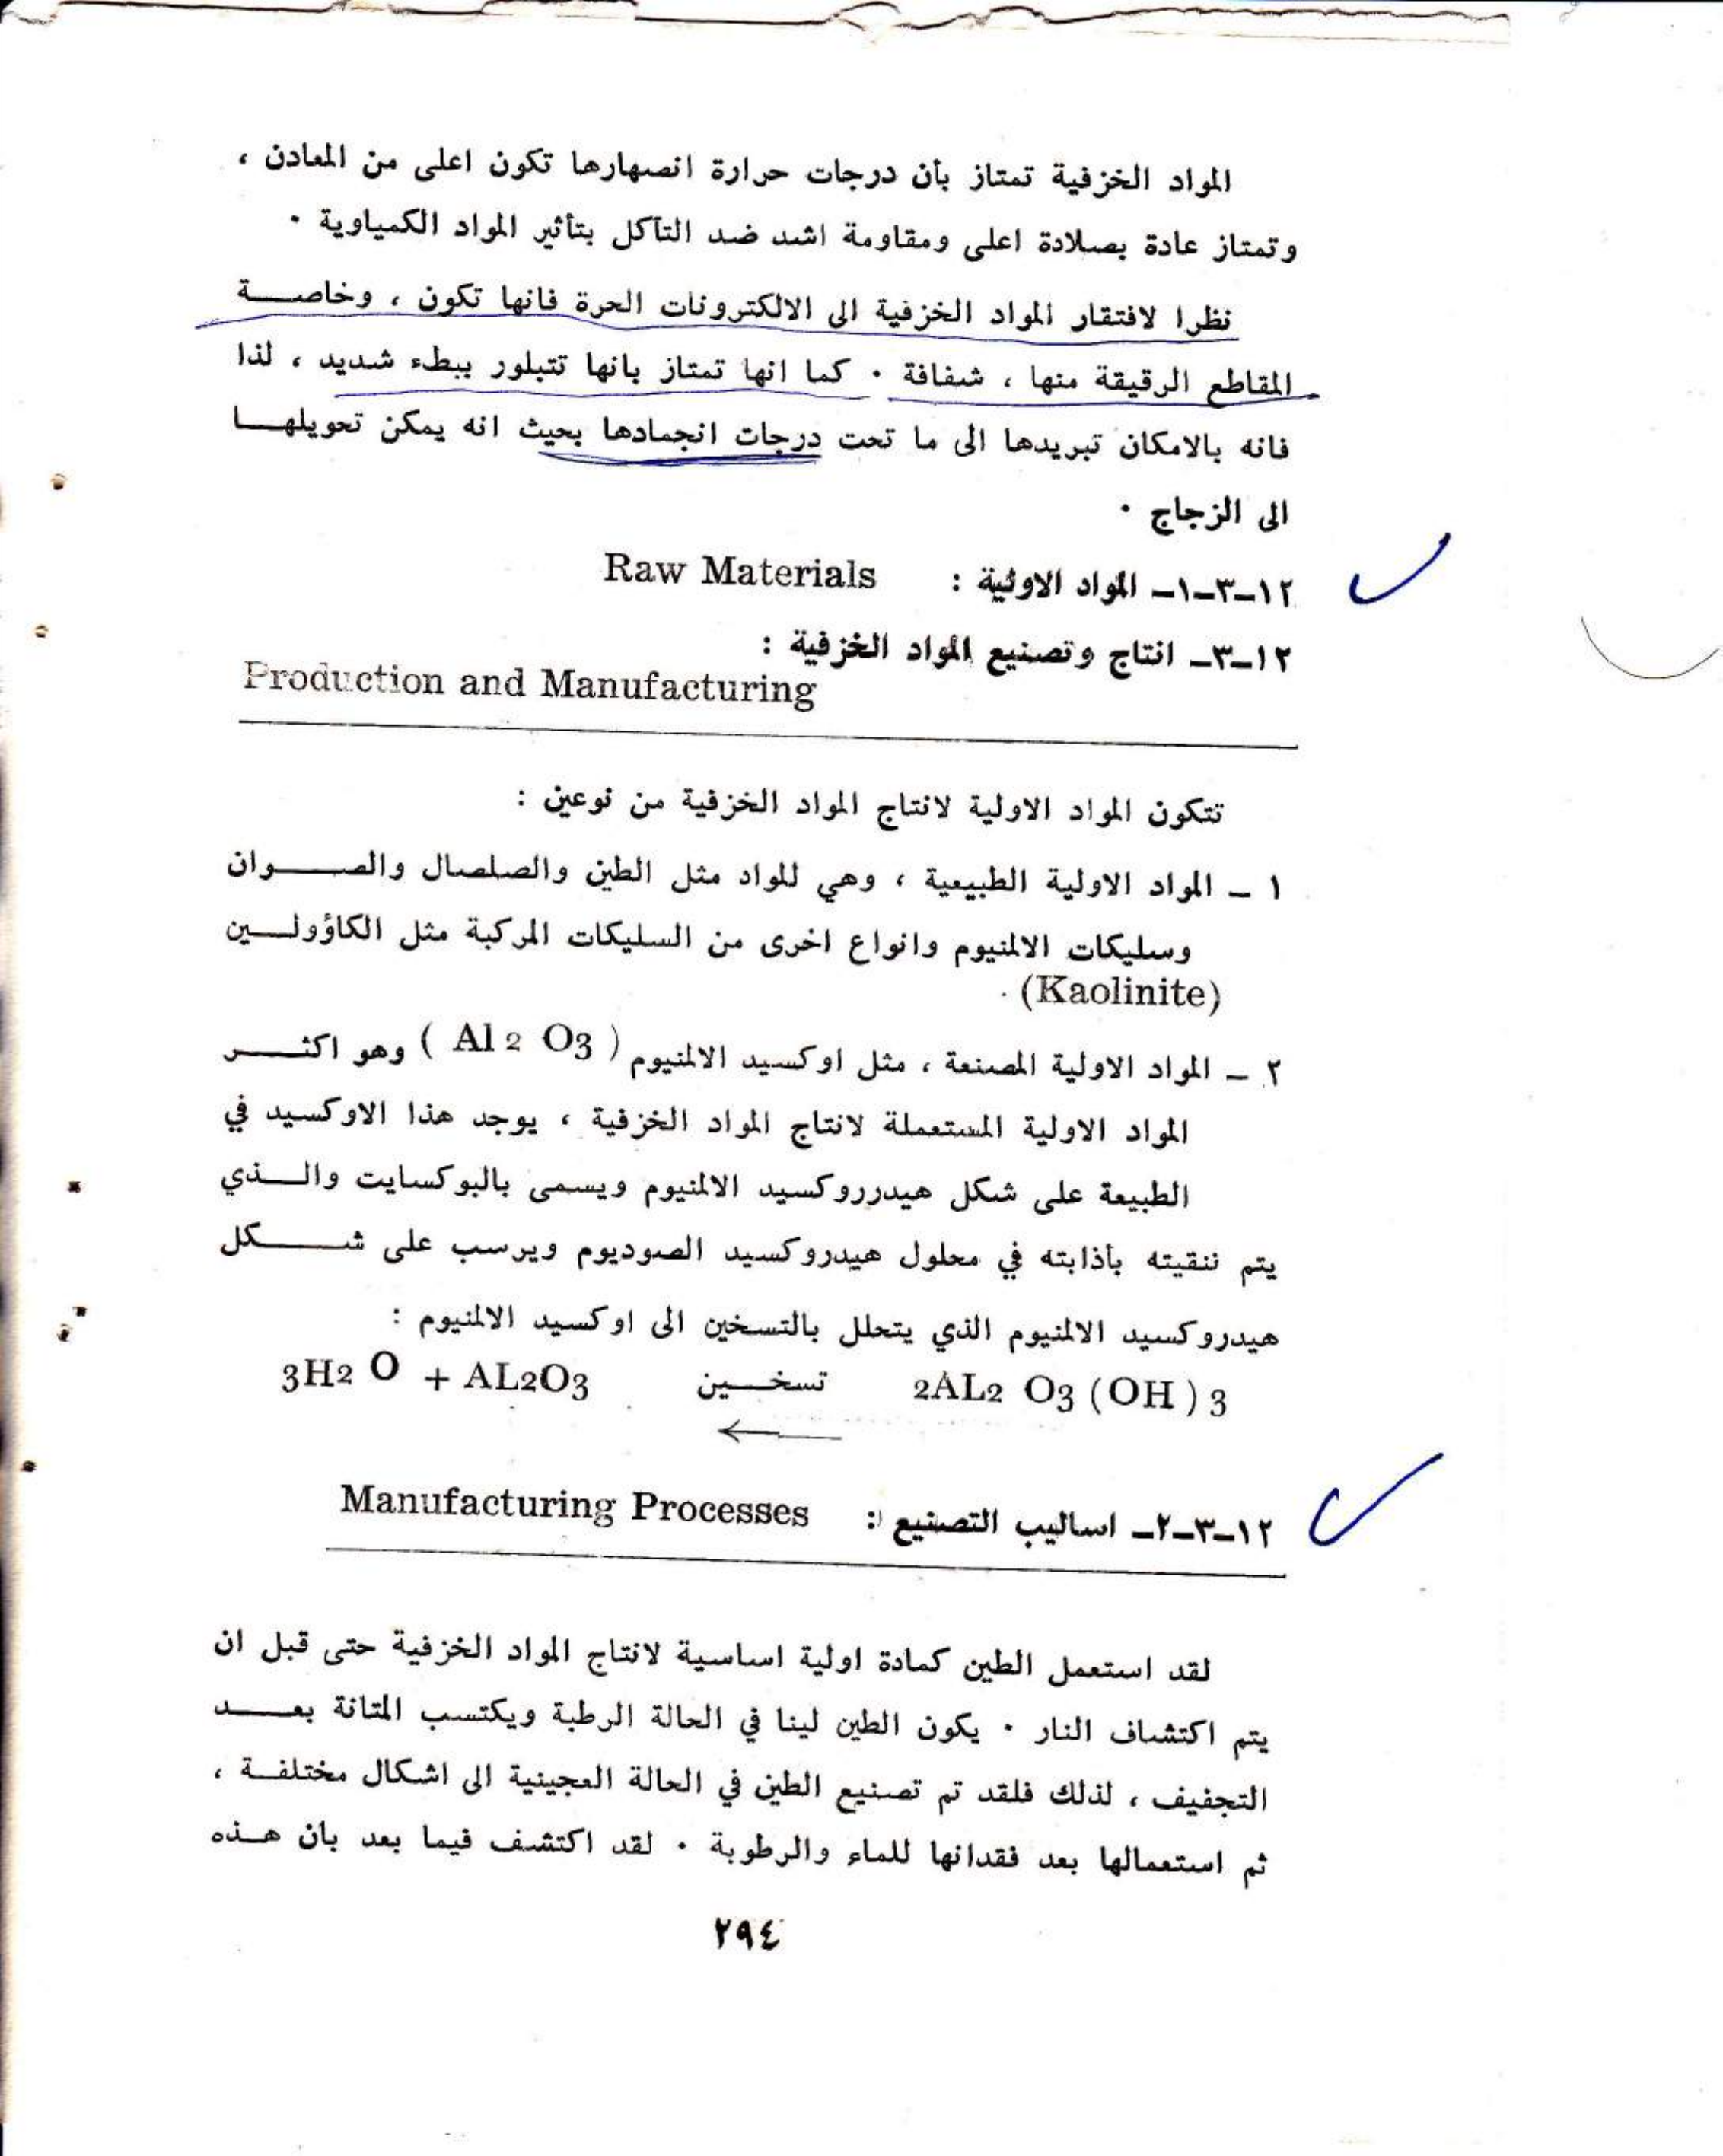 المواد الخزفية تمتاز بأن درجات حرارة انصهارها تكون اعلى من المعادن ،
وتمتاز عادة بصلادة اعلى ومقاومة اشد ضد التآكل بتأثير المواد الكمياوية ٠
نظرا لافتقار المواد الخزفية الى الالكترونات الحرة فانها تكون ، وخاصة
المقاطع الرقيقة منها ، شفافة ٠ كما انها تمتاز بانها تتبلور ببطء شديد ، لذا
فانه بالامكان تبريدها الى ما تحت درجات انجمادها بحيث انه يمكن تحويلها
الى الزجاج ٠
١٢–٣–١– المواد الاولية : Raw Materials
١٢–٣– انتاج وتصنيع المواد الخزفية :
Production and Manufacturing
تتكون المواد الاولية لانتاج المواد الخزفية من نوعين :
١ – المواد الاولية الطبيعية ، وهي للواد مثل الطين والصلصال والصوان
وسليكات الالمنيوم وانواع اخرى من السليكات المركبة مثل الكاؤولين
(Kaolinite) .
٢ – المواد الاولية المصنعة ، مثل اوكسيد الالمنيوم ( Al2 O3 ) وهو اكثر
المواد الاولية المستعملة لانتاج المواد الخزفية ، يوجد هذا الاوكسيد في
الطبيعة على شكل هيدرروكسيد الالمنيوم ويسمى بالبوكسايت والذي
يتم ننقيته بأذابته في محلول هيدروكسيد الصوديوم ويرسب على شكل
هيدروكسيد الالمنيوم الذي يتحلل بالتسخين الى اوكسيد الالمنيوم :
3H2 O + AL2O3 تسخين 2AL2 O3 (OH ) 3
←
١٢–٣–٢– اساليب التصنيع : Manufacturing Processes
لقد استعمل الطين كمادة اولية اساسية لانتاج المواد الخزفية حتى قبل ان
يتم اكتشاف النار ٠ يكون الطين لينا في الحالة الرطبة ويكتسب المتانة بعد
التجفيف ، لذلك فلقد تم تصنيع الطين في الحالة العجينية الى اشكال مختلفة ،
ثم استعمالها بعد فقدانها للماء والرطوبة ٠ لقد اكتشف فيما بعد بان هذه
٢٩٤